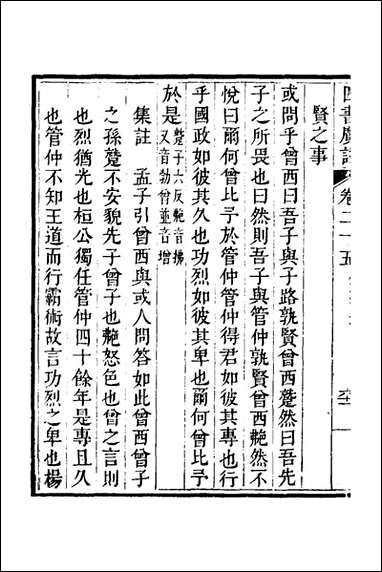 四書廣註 卷二十五
賢之事
或問乎曾西曰吾子與子路孰賢曾西蹵然曰吾先
子之所畏也曰然則吾子與管仲孰賢曾西艴然不
悅曰爾何曾比予於管仲管仲得君如彼其專也行
乎國政如彼其久也功烈如彼其卑也爾何曾比予
於是 蹵子六反艴音拂
又音勃曾並音增
集註 孟子引曾西與或人問答如此曾西曾子
之孫蹵不安貌先子曾子也艴怒色也曾之言則
也烈猶光也桓公獨任管仲四十餘年是專且久
也管仲不知王道而行霸術故言功烈之卑也楊